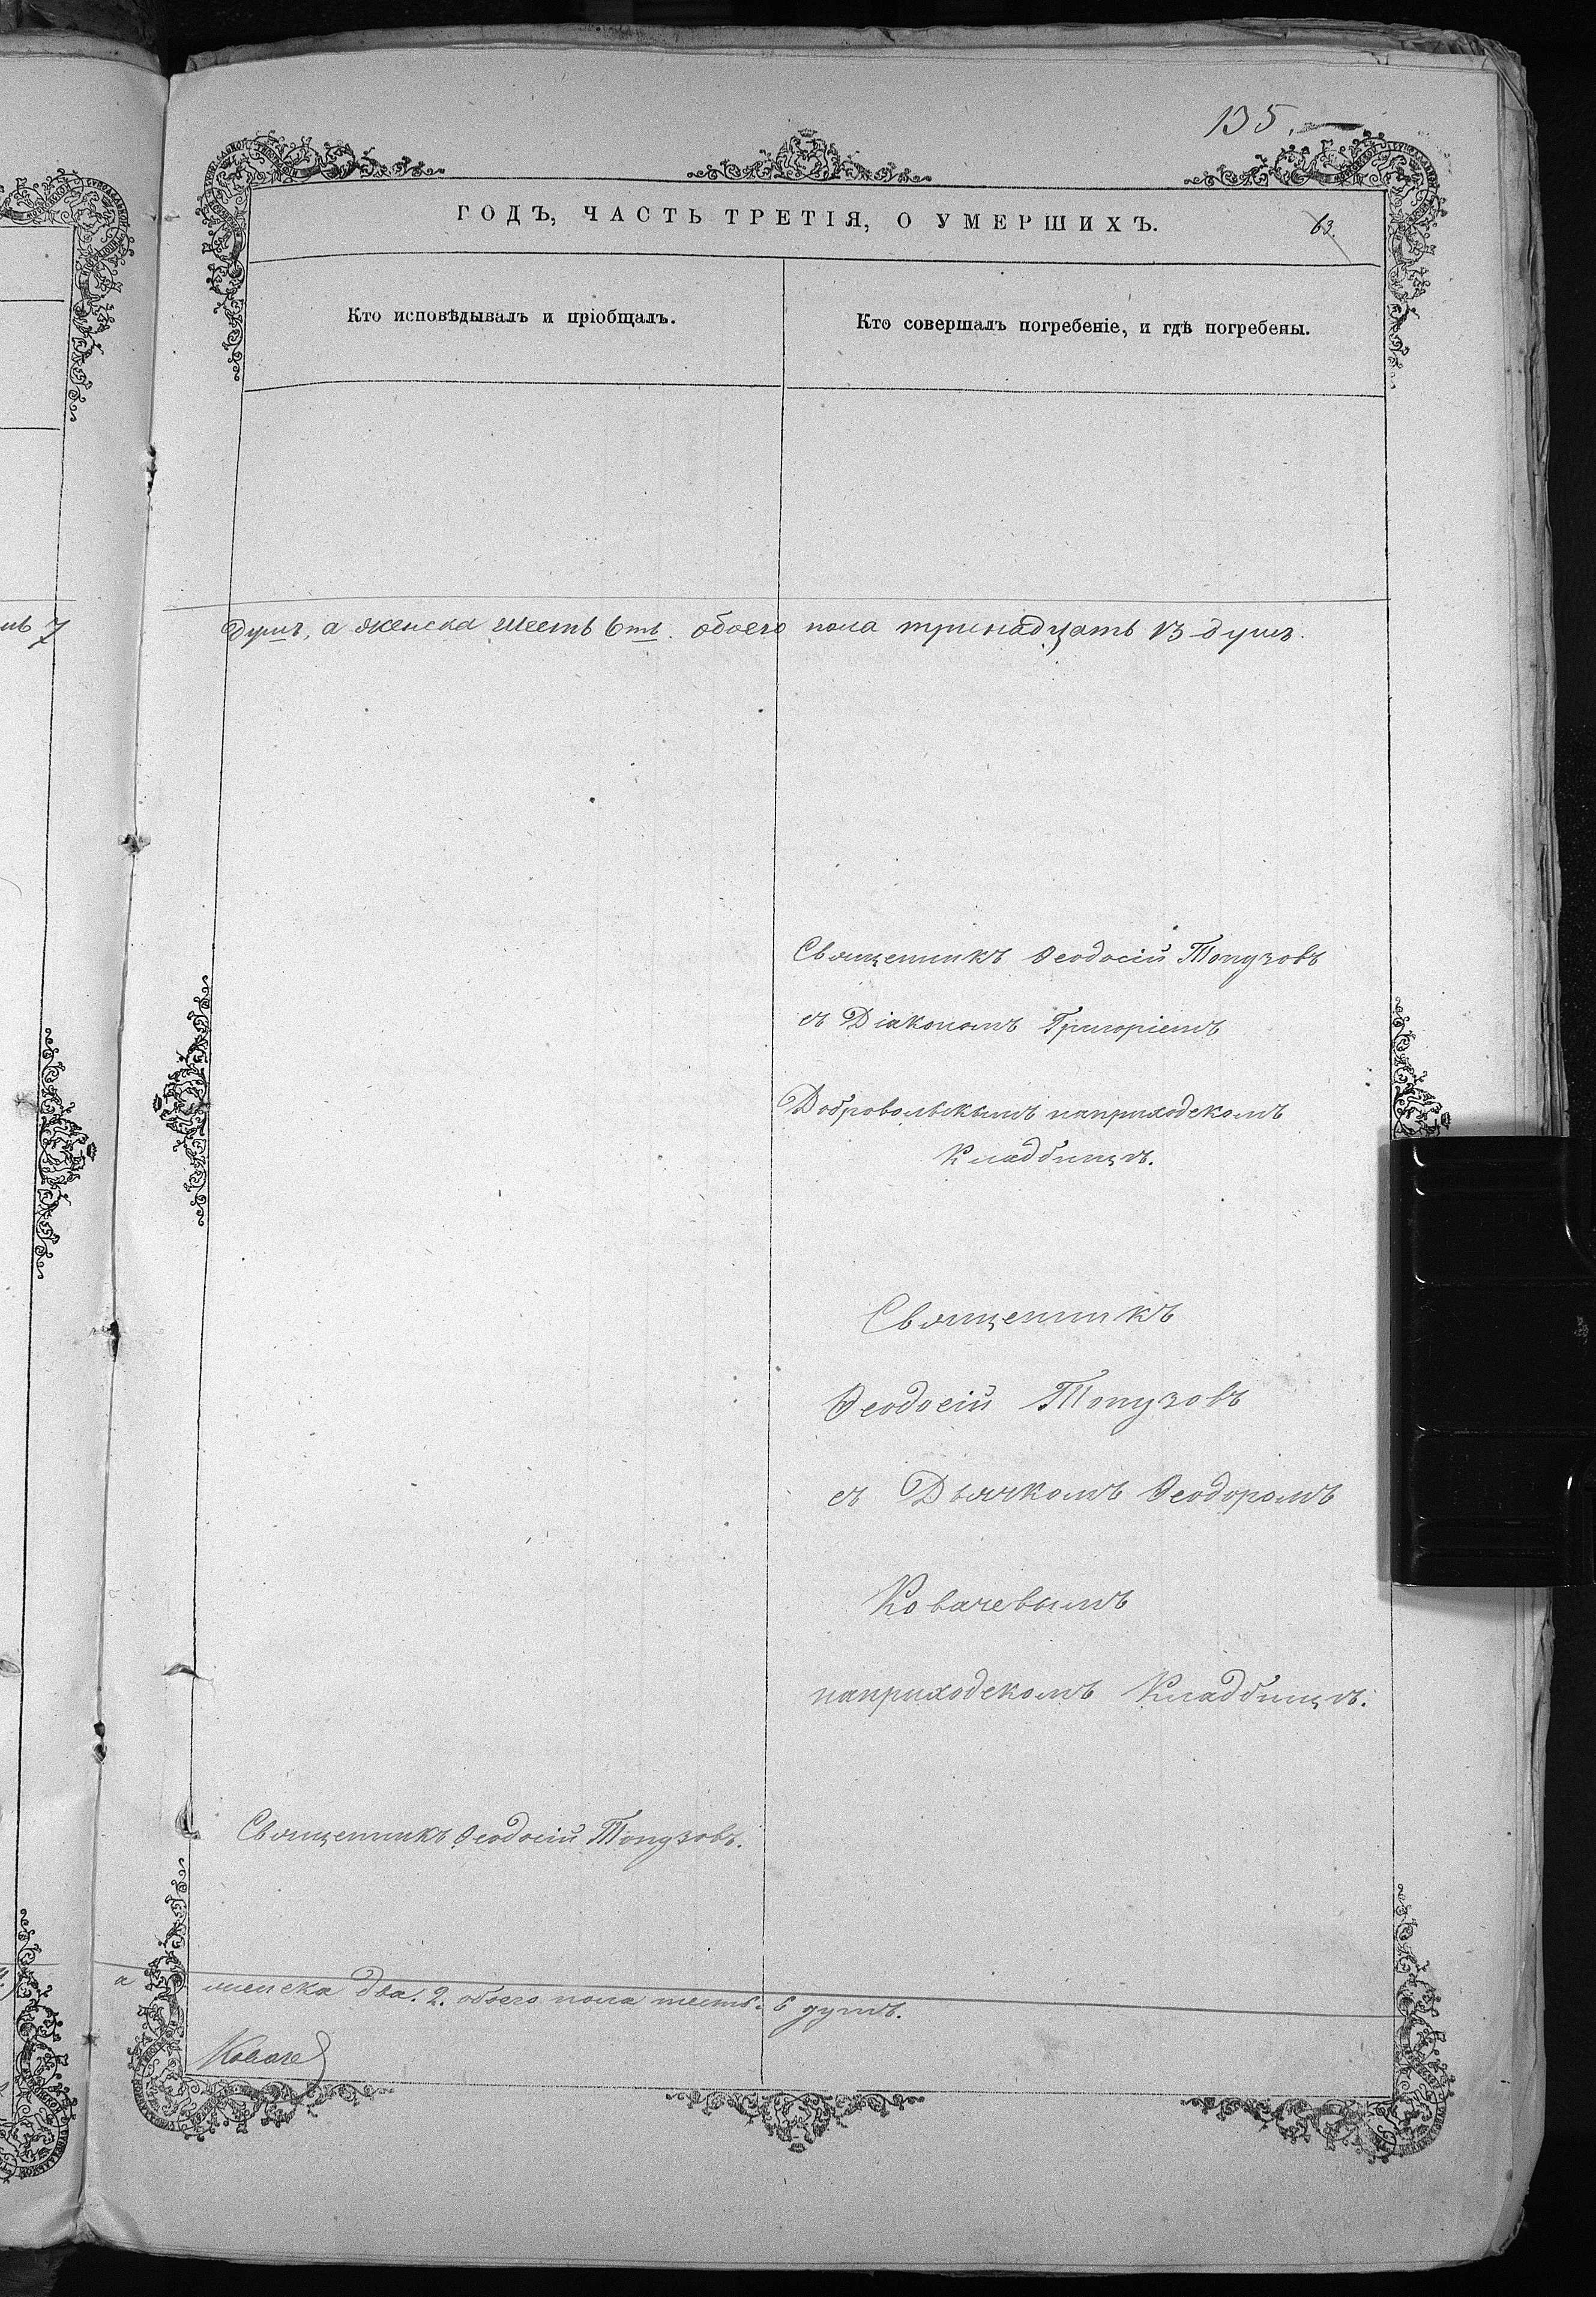 135.
ГОДЪ, ЧАСТЬ ТРЕТІЯ, О УМЕРШИХЪ.
63.
Кто исповѣдывалъ и пріобщалъ.
Кто совершалъ погребеніе, и гдѣ погребены.
7
Душъ, а женска шесть 6ть. обоего пола тринадцать 13 душъ.
Священникъ Ѳеодосій Топузовъ
съ Діакономъ Григоріемъ
Добровольскимъ наприходскомъ
Кладбищѣ.
Священникъ
Ѳеодосій Топузовъ
съ Дьячкомъ Ѳеодоромъ
Ковачевымъ
наприходскомъ Кладбищѣ.
Священникъ Ѳеодосій Топузовъ.
а женска два. 2. обоего пола шесть. 6 душъ.